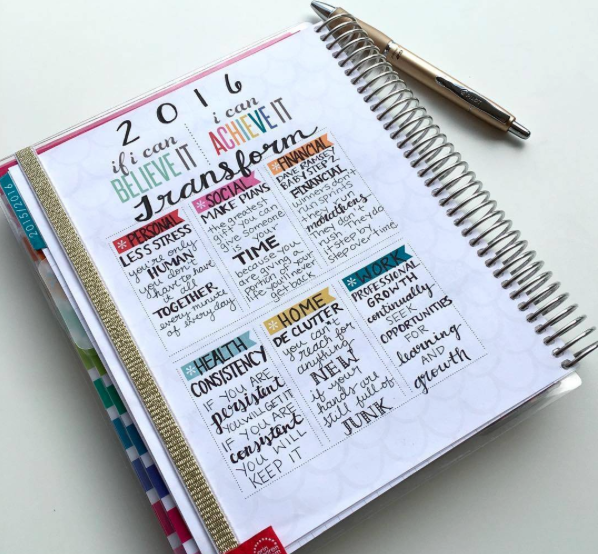 2016
if i can
BELIEVE IT
i can
ACHIEVE IT
Transform
PERSONAL
LESS STRESS
you're only
HUMAN
you don't
have to have
it all
TOGETHER
every minute
of everyday
SOCIAL
MAKE PLANS
the greatest
gift you can
give someone
is your
TIME
because you
are giving a
portion of your
life you never
get back
FINANCIAL
DAVE RAMSEY
BABY STEP 2
FINANCIAL
winners don't
run sprints
they run
marathons
They don't
rush. They do
step by
step over time
HEALTH
CONSISTENCY
IF YOU ARE
persistent
YOU WILL GET IT
IF YOU ARE
consistent
YOU WILL
KEEP IT
HOME
DE CLUTTER
you can't
reach for
anything
NEW
if your
hands are
still full of
JUNK
WORK
PROFESSIONAL
GROWTH
continually
SEEK
OPPORTUNITIES
FOR
learning
AND
growth
2015/2016